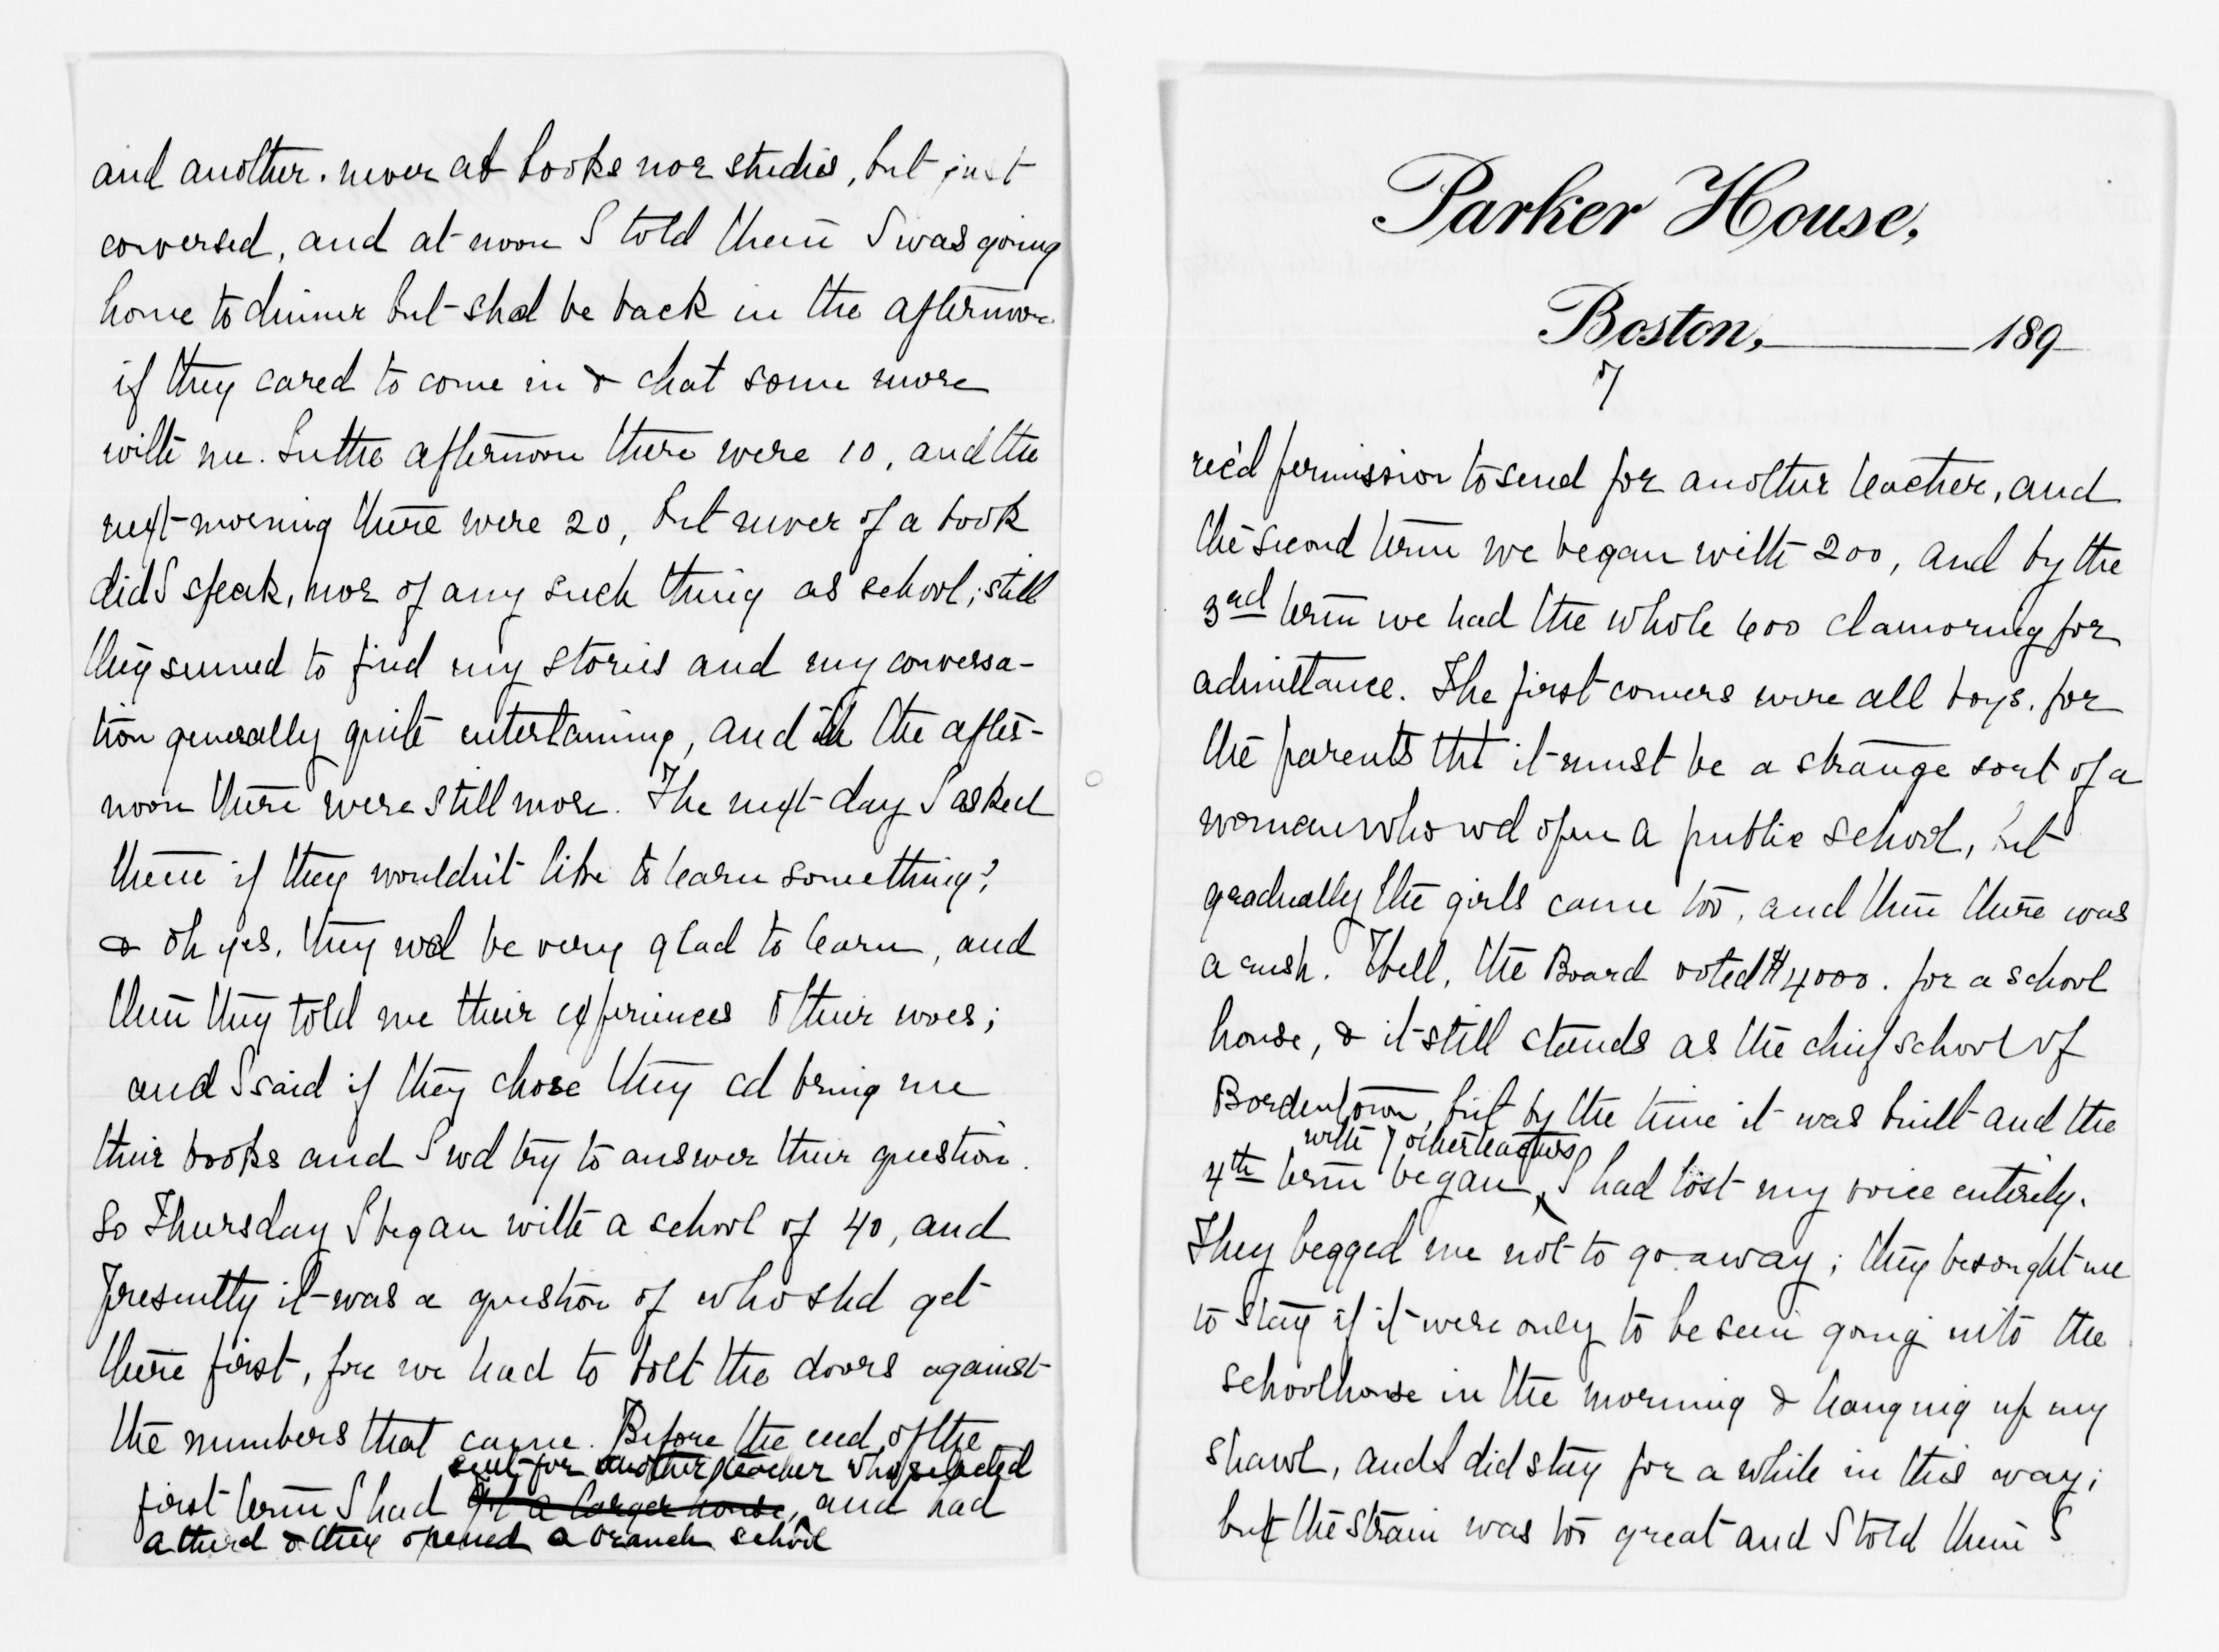 and another. never at books nor studies, but just
conversed, and at noon I told them I was going
home to dinner but shd be back in the afternoon
if they cared to come in & chat some more
with me. In the afternoon there were 10, and the
next morning there were 20, but never of a book
did I speak, nor of any such thing as school; still
they seemed to find my stories and my conversa-
tion generally quite entertaining, and in the after-
noon there were still more. The next day I asked
them if they wouldn't like to learn something?
& oh yes, they wd be very glad to learn, and
then they told me their experiences & their woes;
and I said if they chose they cd bring me
their books and I wd try to answer their question.
So Thursday I began with a school of 40, and
presently it was a question of who shd get
there first, for we had to bolt the doors against
the numbers that came. Before the end of the
sent for another teacher who selected
first term I had got a larger house, and had
a third & they opened a branch school
Parker House,
Boston, 189
7
rec'd permission to send for another teacher, and
the second term we began with 200, and by the
3rd term we had the whole 600 clamoring for
admittance. The first comers were all boys, for
the parents tht it must be a strange sort of a
woman who wd open a public school, but
gradually the girls came too, and then there was
a rush. Well, the Board voted $4000. for a school
house, & it still stands as the chief school of
Bordentown, but by the time it was built and the
with 7 other teachers
4th term began, I had lost my voice entirely.
They begged me not to go away; they besought me
to stay if it were only to be seen going into the
schoolhouse in the morning & hanging up my
shawl, and I did stay for a while in this way;
but the strain was too great and I told them I